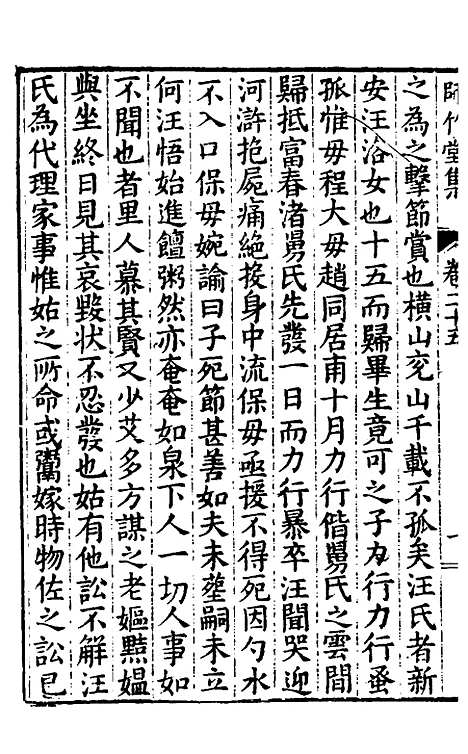 師竹堂集 卷二十五
之為之擊節賞也橫山兗山千載不孤矣汪氏者新
安汪浴女也十五而歸畢生竟可之子力行力行蚤
孤惟毋程大毋趙同居甫十月力行偕舅氏之雲間
歸抵富春渚舅氏先發一日而力行暴卒汪聞哭迎
河滸抱屍痛絕投身中流保毋亟援不得死因勺水
不入口保毋婉諭曰子死節甚善如夫未塟嗣未立
何汪悟始進饘粥然亦奄奄如泉下人一切人事如
不聞也者里人慕其賢又少艾多方謀之老嫗黠媼
與坐終日見其哀毀狀不忍發也姑有他訟不解汪
氏為代理家事惟姑之所命或鬻嫁時物佐之訟已